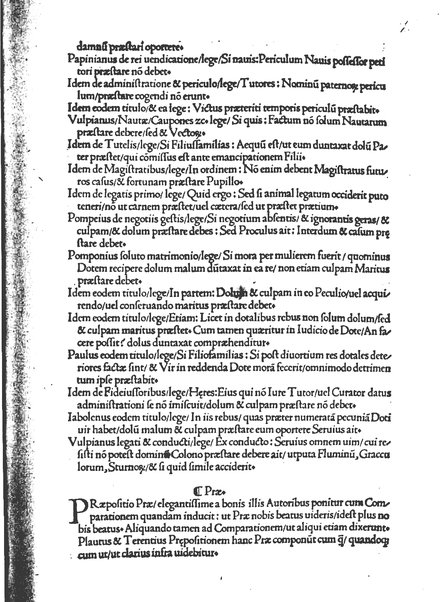 damnũ præstari oportere.
Papinianus de rei uendicatione/lege/Si nauis: Periculum Nauis possessor peti
tori præstare nõ debet.
Idem de administratiõe & periculo/lege/Tutores: Nominũ paternoꝝ pericu
lum/præstare cogendi nõ erunt.
Idem eodem titulo/& ea lege: Victus præteriti temporis periculũ præstabit.
Vulpianus/Nautæ/Caupones ꝛc. lege/Si quis: Factum nõ solum Nautarum
præstare debere/sed & Vectoꝝ.
Idem de Tutelis/lege/Si Filiusfamilias: Aequũ est/ut eum duntaxat dolũ Pa-
ter præstet/qui cõmissus est ante emancipationem Filii.
Idem de Magistratibus/lege/In ordinem: Nõ enim debent Magistratus futu-
ros casus/& fortunam præstare Pupillo.
Idem de legatis primo/lege/Quid ergo: Sed si animal legatum occiderit puto
teneri/nõ ut carnem præstet/uel cætera/sed ut præstet præcium.
Pompeius de negotiis gestis/lege/Si negotium absentis/& ignorantis geras/&
culpam/& dolum præstare debes: Sed Proculus ait: Interdum & casum præ
stare debet.
Pomponius soluto matrimonio/lege/Si mora per mulierem fuerit/quominus
Dotem recipere dolum malum dũtaxat in ea re/non etiam culpam Maritus
præstare debet.
Idem eodem titulo/lege/In partem: Dolum & culpam in eo Peculio/uel acqui
rendo/uel conseruando maritus præstare debet.
Idem eodem titulo/lege/Etiam: Licet in dotalibus rebus non solum dolum/sed
& culpam maritus præstet. Cum tamen quæritur in Iudicio de Dote/An fa-
cere possit? dolus duntaxat compræhenditur.
Paulus eodem titulo/lege/Si Filiofamilias: Si post diuortium res dotales dete-
riores factæ sint/& Vir in reddenda Dote morã fecerit/omnimodo detrimen
tum ipse præstabit.
Idem de Fideiussoribus/lege/Hęres: Eius qui nõ Iure Tutor/uel Curator datus
administrationi se nõ imiscuit/dolum & culpam præstare nõ debet.
Iabolenus eodem titulo/lege/In iis rebus/quas præter numeratã pecuniã Doti
uir habet/dolũ malum & culpam præstare eum oportere Seruius ait.
Vulpianus legati & conducti/lege/Ex conducto: Seruius omnem uim/cui re-
sisti nõ potest dominũ Colono præstare debere ait/utputa Fluminũ, Graccu
lorum, Sturnoꝝ/& si quid simile acciderit.
¶ Præ.
PRæpositio Præ/elegantissime a bonis illis Autoribus ponitur cum Com-
parationem quandam inducit: ut Præ nobis beatus uideris/idest plus no
bis beatus. Aliquando tamen ad Comparationem/ut aliqui etiam dixerunt.
Plautus & Terentius Prępositionem hanc Præ componũt cum q̃/quandoq;
cum ut/ut clarius infra uidebitur.